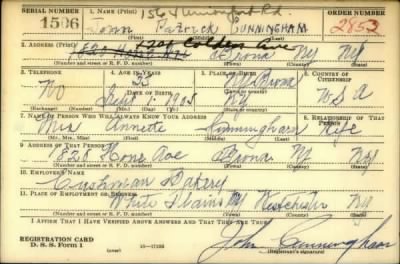 SERIAL NUMBER 1. NAME (Print) ORDER NUMBER
1506 John Patrick CUNNINGHAM 2852
(First) (Middle) (Last)
2. ADDRESS (Print)
Bronx NY NY
(Number and street or R. F. D. number) (Town) (County) (State)
3. TELEPHONE 4. AGE IN YEARS 5. PLACE OF BIRTH 6. COUNTRY OF CITIZENSHIP
No Bronx
DATE OF BIRTH
1905 NY U S A
(Exchange) (Number) (Mo.) (Day) (Yr.) (State or country)
7. NAME OF PERSON WHO WILL ALWAYS KNOW YOUR ADDRESS 8. RELATIONSHIP OF THAT PERSON
Mrs Annette Cunningham Wife
(Mr., Mrs., Miss) (First) (Middle) (Last)
9. ADDRESS OF THAT PERSON
Hone Ave Bronx NY NY
(Number and street or R. F. D. number) (Town) (County) (State)
10. EMPLOYER'S NAME
Cushman Bakery
11. PLACE OF EMPLOYMENT OR BUSINESS
White Plains NY Westchester NY
(Number and street or R. F. D. number) (Town) (County) (State)
I AFFIRM THAT I HAVE VERIFIED ABOVE ANSWERS AND THAT THEY ARE TRUE.
REGISTRATION CARD
D. S. S. Form 1 (over)
John Cunningham
(Registrant's signature)